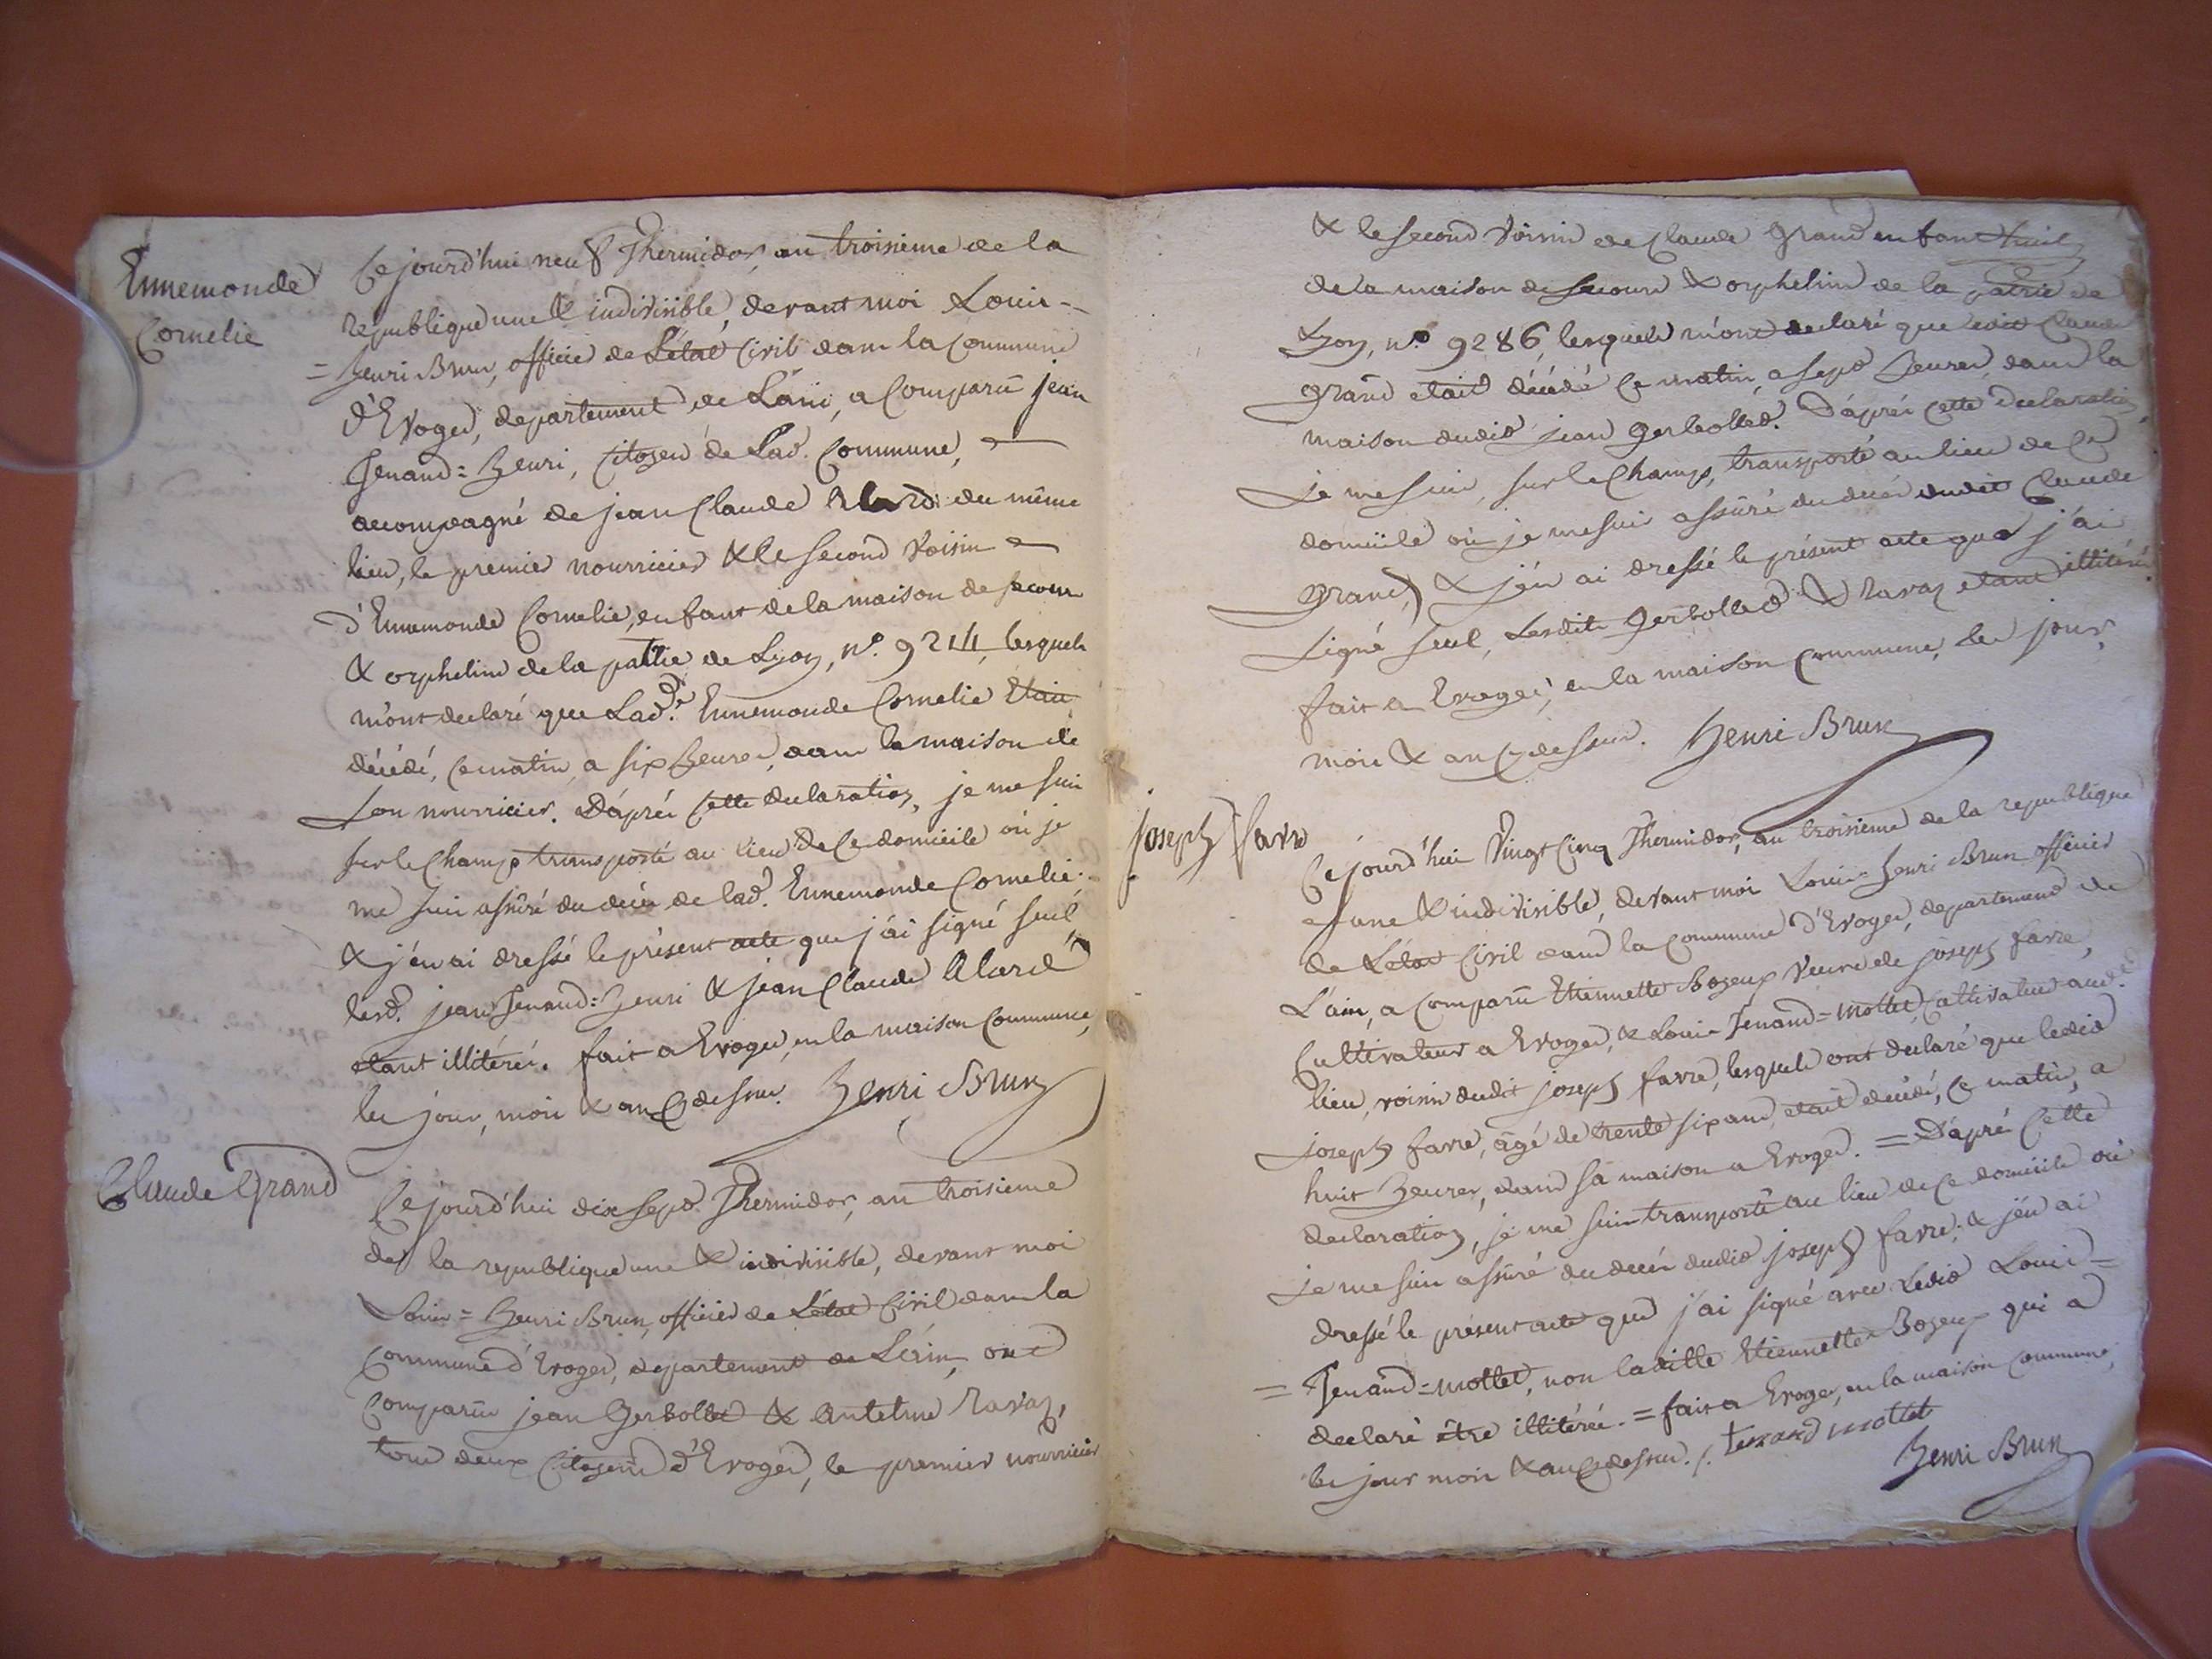 Ennemonde
Cornelie
Cejourd'hui neuf Thermidor, an troisieme de la
republique une & indivisible, devant moi Louis=
=henri Brun, officier de L'état Civil dans la Commune
d'Evoges, departement de L'ain, a Comparû jean
Tenand=henri, Citoyen de Lad. Commune,
accompagné de jean Claude Alard du même
lieu, le premier nourricier & le second Voisin
d'Ennemonde Cornelie, enfant de la maison de secours
& orphelins de la patrie de Lyon, n.º 9214, lesquels
m'ont declaré que Lad.e Ennemonde Cornelie Etait
décédé, ce matin, a six heures, dans la maison de
Son nourricier. D'après Cette declaration, je me suis
sur le Champ transporté au lieu de ce domicile où je
me suis assûré du décès de lad.e Ennemonde Cornelie
& j'en ai dressé le présent acte que j'ai signé seul,
lesd. jean Tenand=henri & jean Claude Alard
étant illitérés. fait a Evoges, en la maison Commune,
les jour, mois & an Cy dessus. Henri Brun
Claude Grand
Cejourd'hui dix sept Thermidor, an troisieme
de la republique une & indivisible, devant moi
Louis=henri Brun, officier de L'état Civil dans la
Commune d'Evoges, departement de L'ain, ont
Comparûs jean Gerbollet & Antelme Ravaz,
tous deux Citoyens d'Evoges, le premier nourricier
& le second Voisin de Claude Grand enfant
de la maison de secours & orphelins de la patrie de
Lyon, n.º 9286, lesquels m'ont declaré que ledit Claude
grand etait décédé ce matin, a sept heures, dans la
maison dudit jean gerbollet. D'après Cette Declaration
Je me suis, sur le Champ, transporté au lieu de ce
domicile où je me suis assûré du décès dudit Claude
grand, & j'en ai dressé le présent acte que j'ai
Signé seul, Lesdits gerbollet & Ravaz etant illitérés.
fait a Evoges, en la maison Commune, les jour,
mois & an Cy dessus. Henri Brun
joseph favre
Cejourd'hui Vingt Cinq Thermidor, an troisieme de la republique
une & indivisible, devant moi Louis=henri Brun officier
de L'état Civil dans la Commune d'Evoges, departement de
L'ain, a Comparû Etiennette Bozeux Veuve de joseph favre,
Cultivateur a Evoges, & Louis Tenand=mollet, Cultivateur aud.
lieu, voisin dudit joseph favre, lesquels ont declaré que ledit
joseph favre, âgé de trente six ans, etait décédé, ce matin, a
huit heures, dans sa maison a Evoges. = D'après Cette
declaration, je me suis transporté au lieu de ce domicile où
je me suis assûré du décès dudit joseph favre; & j'en ai
dressé le présent acte que j'ai signé avec Ledit Louis=
=Tenand=mollet, non ladite Etiennette Bozeux qui a
declaré être illitérée. = fait a Evoges, en la maison Commune,
les jour mois & an Cy dessus. /. tenand mollet
Henri Brun